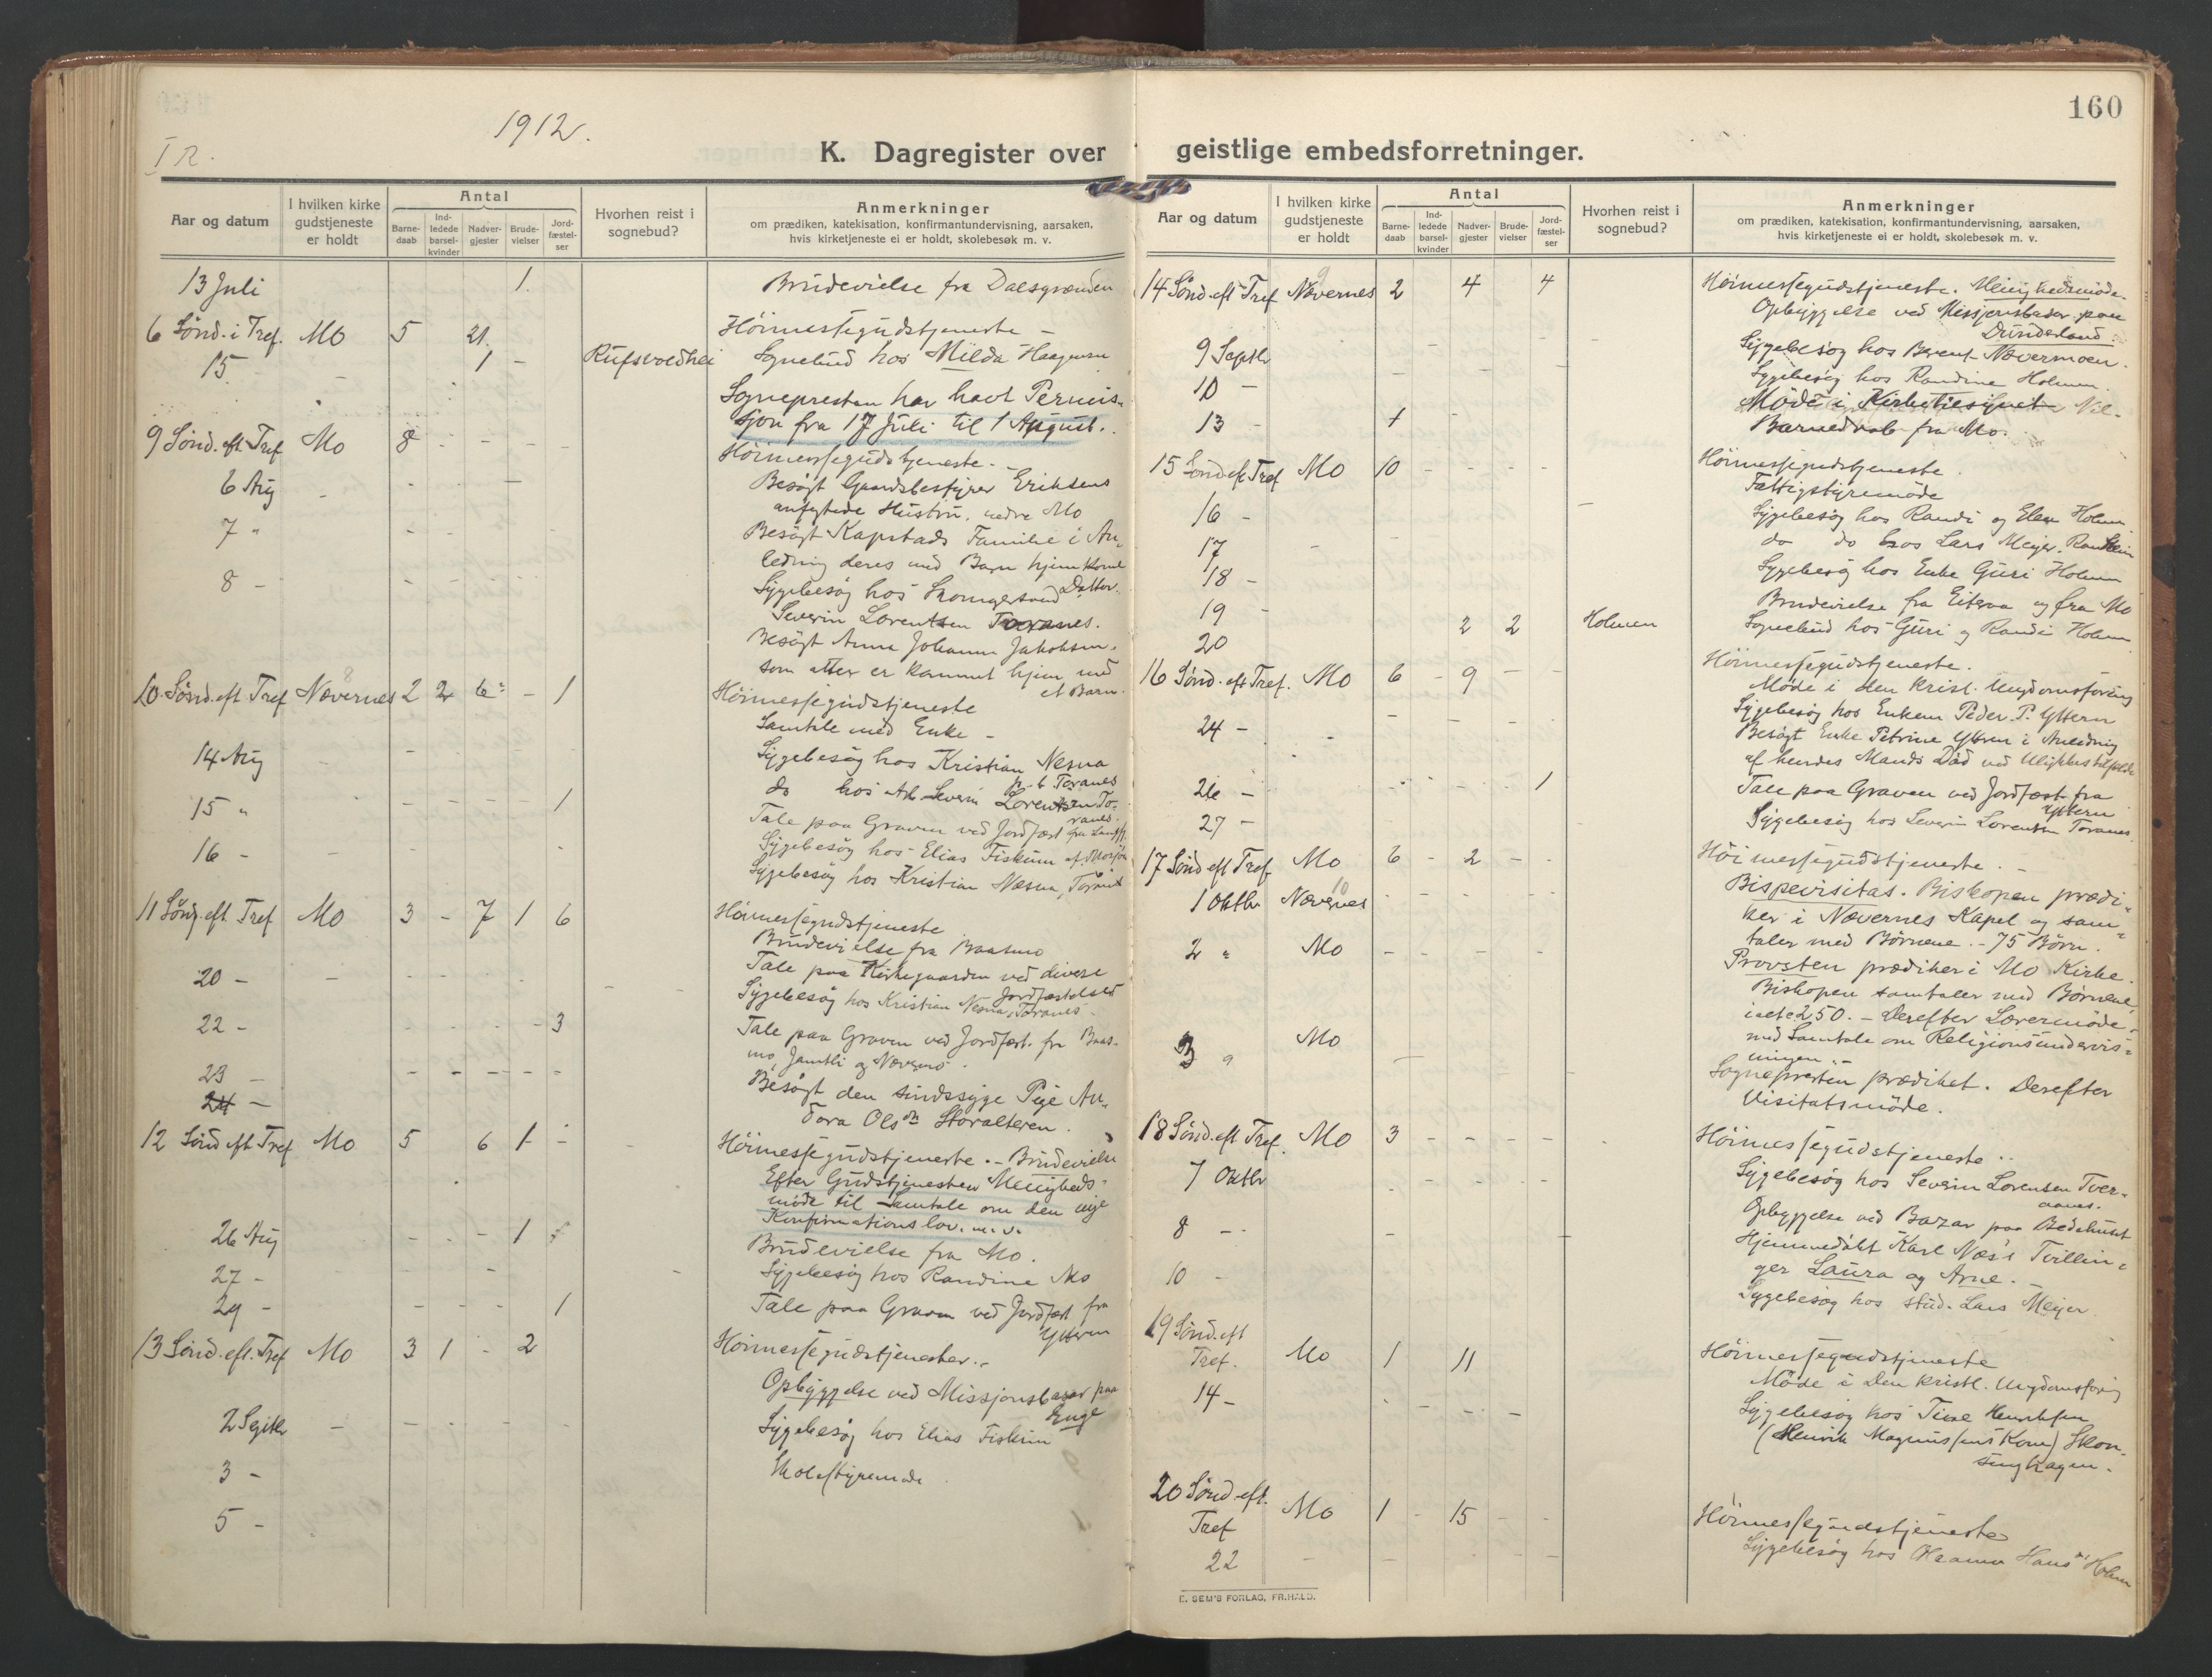 1912.
I R.
K. Dagregister over
Aar og datum
I hvilken kirke gudstjeneste er holdt
Antal
Barne-daab
Ind-ledede barsel-kvinder
Nadver-gjester
Brude-vielser
Jord-fæstel-ser
Hvorhen reist i sognebud?
Anmerkninger
om prædiken, katekisation, konfirmantundervisning, aarsaken,
hvis kirketjeneste ei er holdt, skolebesøk m. v.
13 Juli 1. Brudevielse fra Dalsgrænden
6 Sönd. i Tref. Mo 5 21. Höimessegudstjeneste –
15 – 1 – Sognebud hos Milda
Sognepresten har havt Permis-
sjon fra 17 Juli til 1 August.
9 Sönd. eft Tref Mo 8 - - - - Höimessegudstjeneste. –
6 Aug Besögt Gaardsbestyrer Eriksens
Hustru. nedre Mo
7 " Besögt Kapstads Familie i An-
ledning deres med Barn hjemkomne
Datter.
8 – Sygebesög hos
Severin Lorentsen Toranes.
Besögt Anna Johanna Jakobsen,
som atter er kommet hjem med
et Barn.
8
10. Sönd. eft Tref Nævernes 2 2 6 – 1 Höimessegudstjeneste
Samtale med Enke –
14 Aug Sygebesög hos Kristian Nesna
Toranes
15 " 1 do hos Severin Lorentsen To-
ranes.
Tale paa Graven ved Jordfæst fra
16 – Sygebesög hos Elias Fiskum af Mosjöen
Sygebesög hos Kristian Næsna,
11 Sönd. eft. Tref Mo 3 - 7 1 6 Höimessegudstjeneste
Brudevielse fra Baasmo
Tale paa Kirkegaarden ved diverse
Jordfæstelser
20 – Sygebesög hos Kristian Nesna, Toranes –
22 – 3 Tale paa Graven ved Jordfæst. fra Baas-
mo, Jamtli og Nævernes.
23 – Besögt den sindssyge Pige An-
24 – dora Olsdn Storalteren.
12 Sönd eft Tref Mo 5 6 1 - Höimessegudstjeneste. – Brudevielse
Efter Gudstjenesten Menigheds-
möde til Samtale om den nye
Konfirmationslov. m. v.
26 Aug 1 Brudevielse fra Mo.
27 – Sygebesög hos Randine Mo
29 – 1 Tale paa Graven ved Jordfæst fra
Ytteren
13 Sönd. eft. Tref Mo 3 1 - 2 Höimessegudstjenester. –
Opbyggelse ved Missjonsbasar paa
Enge
2 Septbr – Sygebesög hos Elias Fiskum
3 – Skolestyremöde
5 –
160
geistlige embedsforretninger.
Aar og datum
I hvilken kirke gudstjeneste er holdt
Antal
Barne-daab
Ind-ledede barsel-kvinder
Nadver-gjester
Brude-vielser
Jord-fæstel-ser
Hvorhen reist i sognebud?
Anmerkninger
om prædiken, katekisation, konfirmantundervisning, aarsaken,
hvis kirketjeneste ei er holdt, skolebesøk m. v.
9
14 Sönd. eft Tref Nævernes 2 4 4 Höimessegudstjeneste. Menighedsmöde.
Opbyggelse ved Missjonsbasar paa
Dunderland
9 Septbr Sygebesög hos Berent Nævermoen.
10 – Sygebesög hos Randine Holmen.
Möde i Kirketilsynet
13 – 1 Barnedaab fra Mo.
15 Sönd eft Tref Mo 10 - - - - Höimessegudstjeneste.
Fattigstyremöde
16 – Sygebesög hos Randi og Elen Holmen
17 do do hos Lars Meyer.
18 – Sygebesög hos Enke Guri Holmen
19 – 2 2 Holmen Brudevielse fra Eiteraa og fra Mo
20 Sognebud hos Guri og Randi Holmen
16 Sönd. eft Tref. Mo 6 - 9 – Höimessegudstjeneste.
Möde i den kristl. Ungdomsforening
24 – Sygebesög hos Enkem Peder P. Yttern
Besögt Enke Petrine Yttren i Anledning
af hendes Mands Död ved Ulykkestilfælde
26 – 1 Tale paa Graven ved Jordfæst fra
Ytteren
27 – Sygebesög hos Severin Lorentsen Toranes
17 Sönd eft Tref Mo 6 - 2 - - Höimessegudstjeneste. –
10
1 Oktbr Nævernes Bispevisitas. Biskopen prædi-
ker i Nævernes Kapel og sam-
taler med Börnene. – 75 Börn.
2 " Mo Provsten prædiker i Mo Kirke.
Biskopen samtaler med Börnene,
ialt c 250. – Derefter Lærermöde
med Samtale om Religionsundervis-
ningen. –
3 " Mo Sognepresten prædiket. Derefter
Visitatsmöde.
18 Sönd. eft Tref. Mo 3 - - - - Höimessegudstjeneste.
7 Oktbr Sygebesög hos Severin Lorensen Tver-
aanes.
8 – Opbyggelse ved Bazar paa Bedehuset
10 – Hjemmedöbt Karl Næs's Tvillin-
ger Laura og Arne. –
Sygebesög hos stud. Lars Meyer.
19 Sönd. eft
Tref. Mo 1 11 Höimessegudstjeneste
Möde i Den kristl. Ungdomsforening
14 – Sygebesög hos Henriksen
(Henrik Magnussens Kone) Skon-
senghagen.
20 Sönd. eft.
Tref Mo 1 - 15 - - Höimessegudstjeneste
22 Sygebesög hos Hansdt Holmen
E. SEM'S FORLAG, FR.HALD.